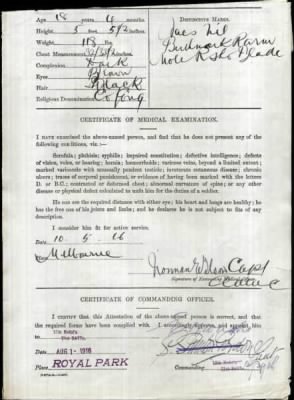 Age 18 years 4 months
DISTINCTIVE MARKS.
Height 5 feet 5½ inches
Vacs Nil
Weight 118 lbs.
Birthmark R arm
Chest Measurement inches
mole R Sho Blade
Complexion Dark
Eyes Brown
Hair Black
Religious Denomination Cong
CERTIFICATE OF MEDICAL EXAMINATION.
I HAVE examined the above-named person, and find that he does not present any of the
following conditions, viz.:—
Scrofula; phthisis; syphilis; impaired constitution; defective intelligence; defects
of vision, voice, or hearing; hernia; hæmorrhoids; varicose veins, beyond a limited extent;
marked varicocele with unusually pendent testicle; inveterate cutaneous disease; chronic
ulcers; traces of corporal punishment, or evidence of having been marked with the letters
D. or B.C.; contracted or deformed chest; abnormal curvature of spine; or any other
disease or physical defect calculated to unfit him for the duties of a soldier.
He can see the required distance with either eye; his heart and lungs are healthy; he
has the free use of his joints and limbs; and he declares he is not subject to fits of any
description.
I consider him fit for active service.
Date 10. 5. 16
Place Melbourne
Norman Wilson Capt
Signature of Examining Medical Officer.
CERTIFICATE OF COMMANDING OFFICER.
I CERTIFY that this Attestation of the above-named person is correct, and that
the required forms have been complied with. I accordingly approve, and appoint him
to
Date AUG 1 - 1916
Place ROYAL PARK
Commanding